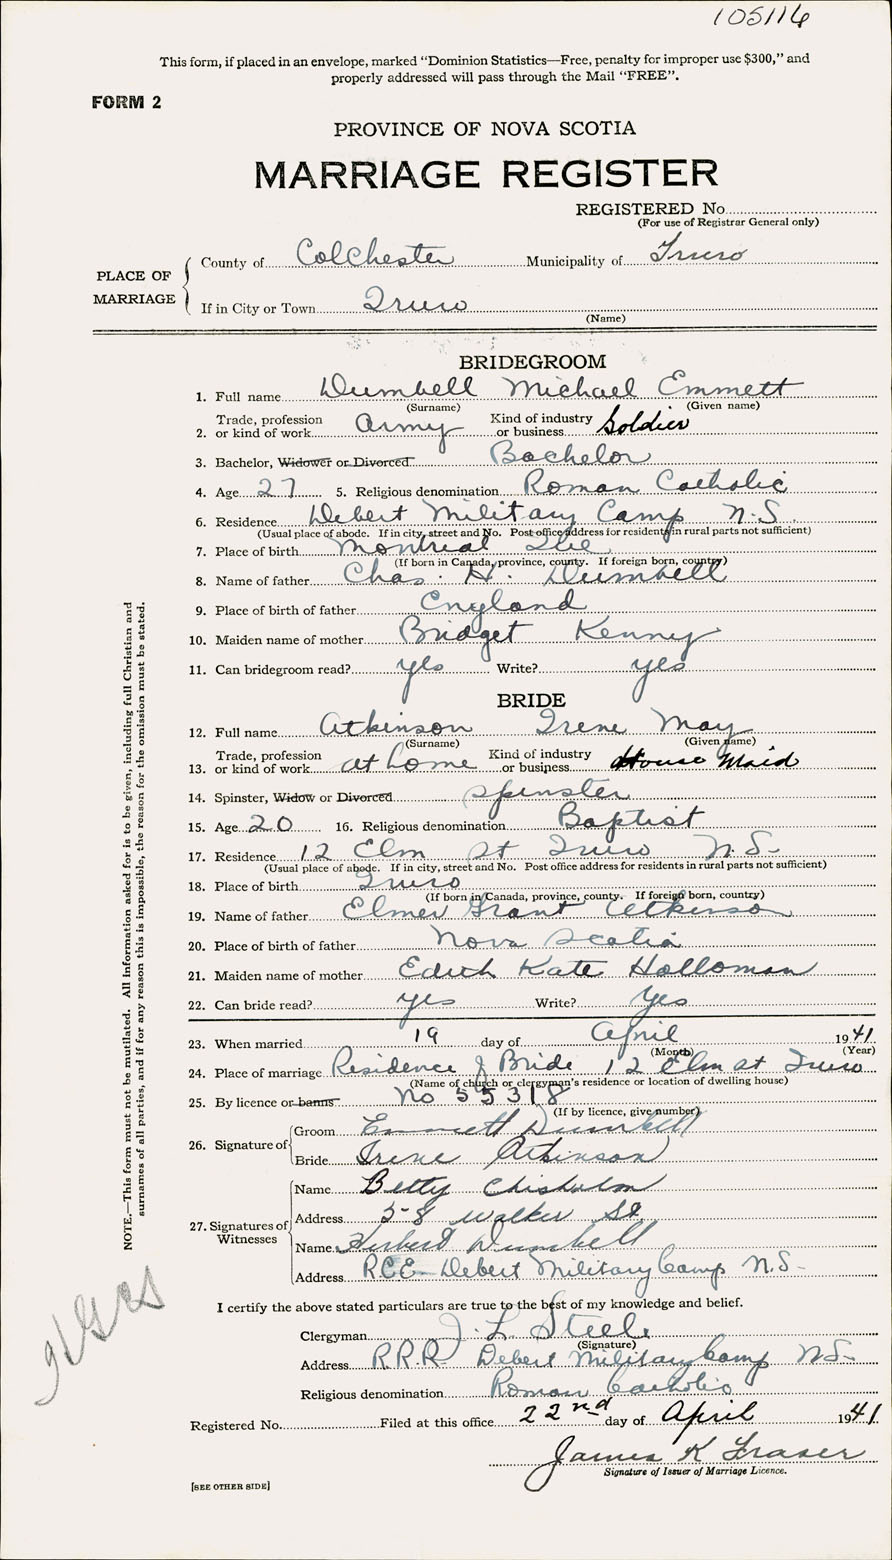 105116
This form, if placed in an envelope, marked “Dominion Statistics—Free, penalty for improper use $300,” and
properly addressed will pass through the Mail “FREE”.
FORM 2
PROVINCE OF NOVA SCOTIA
MARRIAGE REGISTER
REGISTERED No.
(For use of Registrar General only)
PLACE OF MARRIAGE
County of Colchester Municipality of Truro
If in City or Town Truro
(Name)
BRIDEGROOM
1. Full name Dumbell Michael Emmett
(Surname) (Given name)
2. Trade, profession or kind of work Army Kind of industry or business Soldier
3. Bachelor, Widower or Divorced Bachelor
4. Age 27 5. Religious denomination Roman Catholic
6. Residence Debert Military Camp N.S.
(Usual place of abode. If in city, street and No. Post office address for residents in rural parts not sufficient)
7. Place of birth Montreal Que
(If born in Canada, province, county. If foreign born, country)
8. Name of father Chas. H. Dumbell
9. Place of birth of father England
10. Maiden name of mother Bridget Kenney
11. Can bridegroom read? yes Write? yes
BRIDE
12. Full name Atkinson Irene May
(Surname) (Given name)
13. Trade, profession or kind of work at home Kind of industry or business House Maid
14. Spinster, Widow or Divorced Spinster
15. Age 20 16. Religious denomination Baptist
17. Residence 12 Elm St Truro N.S.
(Usual place of abode. If in city, street and No. Post office address for residents in rural parts not sufficient)
18. Place of birth Truro
(If born in Canada, province, county. If foreign born, country)
19. Name of father Elmer Grant Atkinson
20. Place of birth of father Nova Scotia
21. Maiden name of mother Edith Kate Holloman
22. Can bride read? yes Write? yes
23. When married 19 day of April 1941
(Month) (Year)
24. Place of marriage Residence of Bride 12 Elm St Truro
(Name of church or clergyman's residence or location of dwelling house)
25. By licence or banns No 55318
(If by licence, give number)
26. Signature of
Groom Emmett Dumbell
Bride Irene Atkinson
27. Signatures of Witnesses
Name Betty Chisholm
Address 58 Walker St
Name Herbert Dumbell
Address RCE Debert Military Camp N.S.
I certify the above stated particulars are true to the best of my knowledge and belief.
Clergyman J. L. Steele
(Signature)
Address R.R.R. Debert Military Camp N.S.
Religious denomination Roman Catholic
Registered No. Filed at this office 22nd day of April 1941
James K Fraser
Signature of Issuer of Marriage Licence.
[SEE OTHER SIDE]
NOTE.—This form must not be mutilated. All Information asked for is to be given, including full Christian and
surnames of all parties, and if for any reason this is impossible, the reason for the omission must be stated.